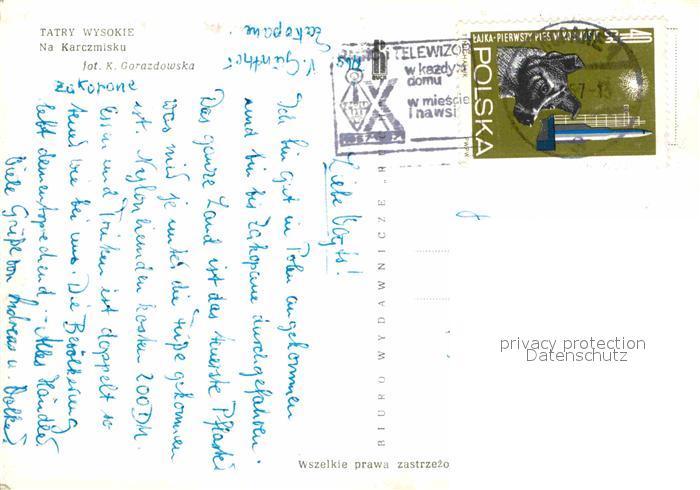 TATRY WYSOKIE
Na Karczmisku
fot. K. Gorazdowska
Zakopane
Liebe Vogts!
Ich bin gut in Polen angekommen
und bin bis Zakopane durchgefahren.
Das ganze Land ist das teuerste Pflaster
was mir je unter die Füße gekommen
ist. Nylonhemden kosten 200 DM.
Essen und Trinken ist doppelt so
teuer wie bei uns. Die Bevölkerung
lebt dementsprechend. Alles Händler
Viele Grüße von Andreas u. Volker
Zakopane
BIURO WYDAWNICZE
Wszelkie prawa zastrzeżo
TELEWIZO
w każdym
domu
w mieście
i na wsi
1967
ŁAJKA - PIERWSZY PIES W KOSMOSIE
40 GR
POLSKA
privacy protection
Datenschutz